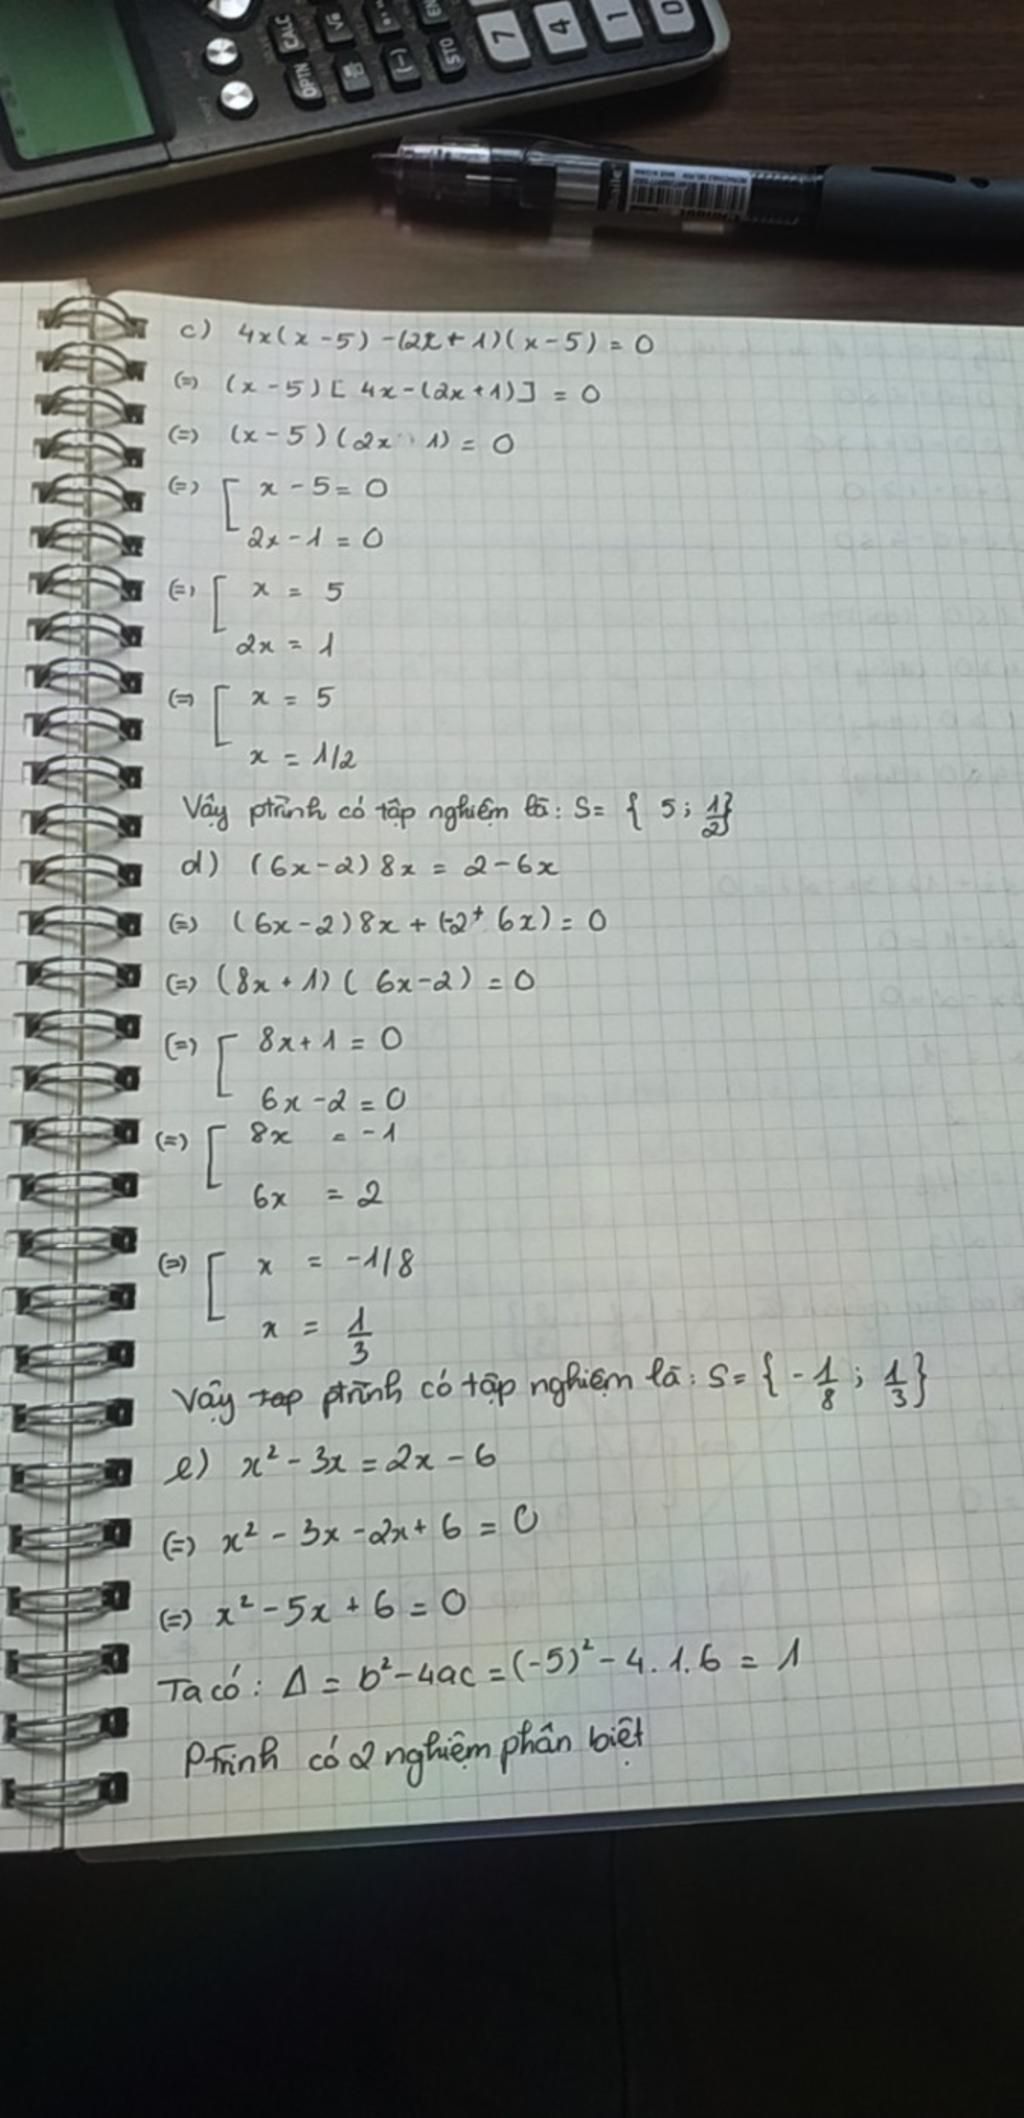 CALC
OPTN
(-)
STO
EN
7
4
1
0
c) 4x(x-5) -(2x+1)(x-5) = 0
(=) (x-5)[4x-(2x+1)] = 0
(=) (x-5)(2x 1) = 0
(=) [ x-5=0
2x-1=0
(=) [ x = 5
2x = 1
(=) [ x = 5
x = 1/2
Vậy ptrình có tập nghiệm là: S= { 5; 1/2}
d) (6x-2)8x = 2-6x
(=) (6x-2)8x + (-2+6x) = 0
(=) (8x+1)(6x-2) = 0
(=) [ 8x+1 = 0
6x-2=0
(=) [ 8x = -1
6x = 2
(=) [ x = -1/8
x = 1/3
Vậy tap ptrình có tập nghiệm là: S= { -1/8; 1/3 }
e) x² - 3x = 2x - 6
(=) x² - 3x - 2x + 6 = 0
(=) x² - 5x + 6 = 0
Ta có: Δ = b² - 4ac = (-5)² - 4.1.6 = 1
Ptrình có 2 nghiệm phân biệt